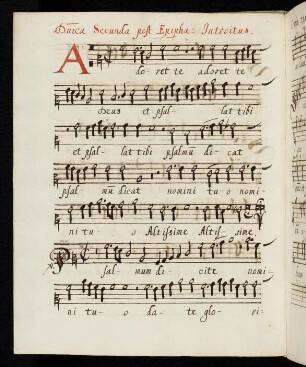 Dnica Secunda post Epipha: Introitus.
A
do- ret te adoret te
Deus et psal- lat tibi
et psal- lat tibi psalmū di- cat
psal mū dicat nomini tu- o nomi-
ni tu- o Altissime Altiss- sime.
P
sal- mum di- cite nomi-
ni tu- o da- te glo- ri-